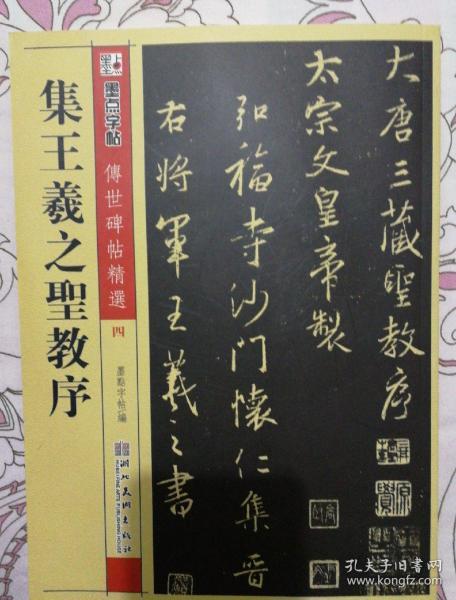 集王羲之聖教序
墨点
墨点字帖
傳世碑帖精選
四
墨點字帖編
湖北美術出版社
HUBEI FINE ARTS PUBLISHING HOUSE
大唐三藏聖教序
太宗文皇帝製
弘福寺沙門懷仁集晉
右將軍王羲之書
孔夫子旧书网
www.kongfz.com